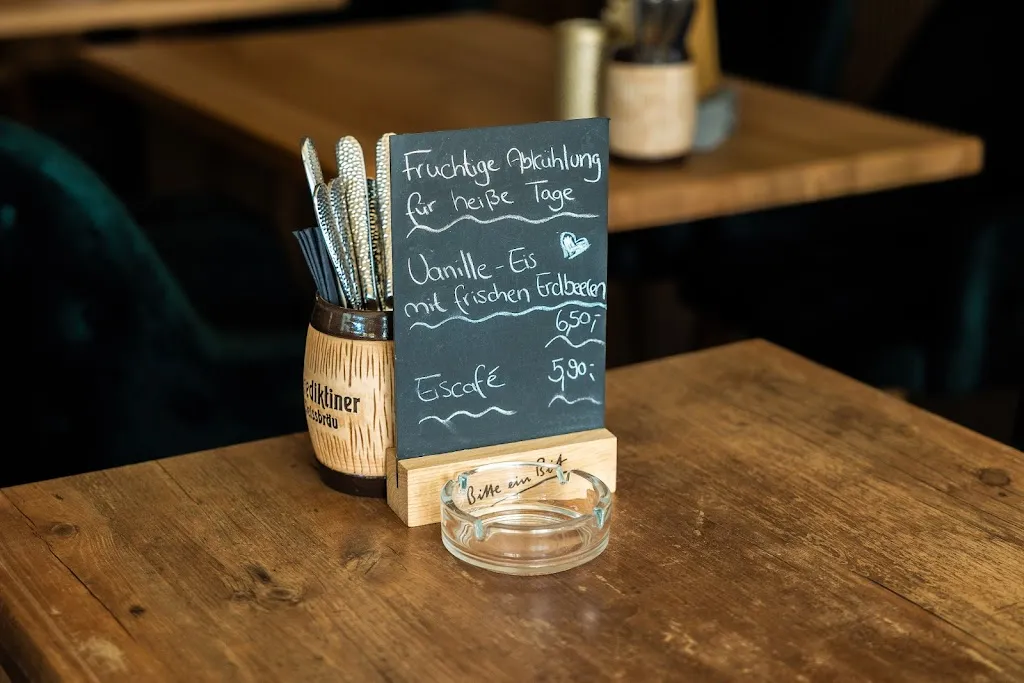 Fruchtige Abkühlung
für heiße Tage
Vanille-Eis
mit frischen Erdbeeren
6,50,-
Eiscafé 5,90,-
Bitte ein Bit
ediktiner
ssbräu